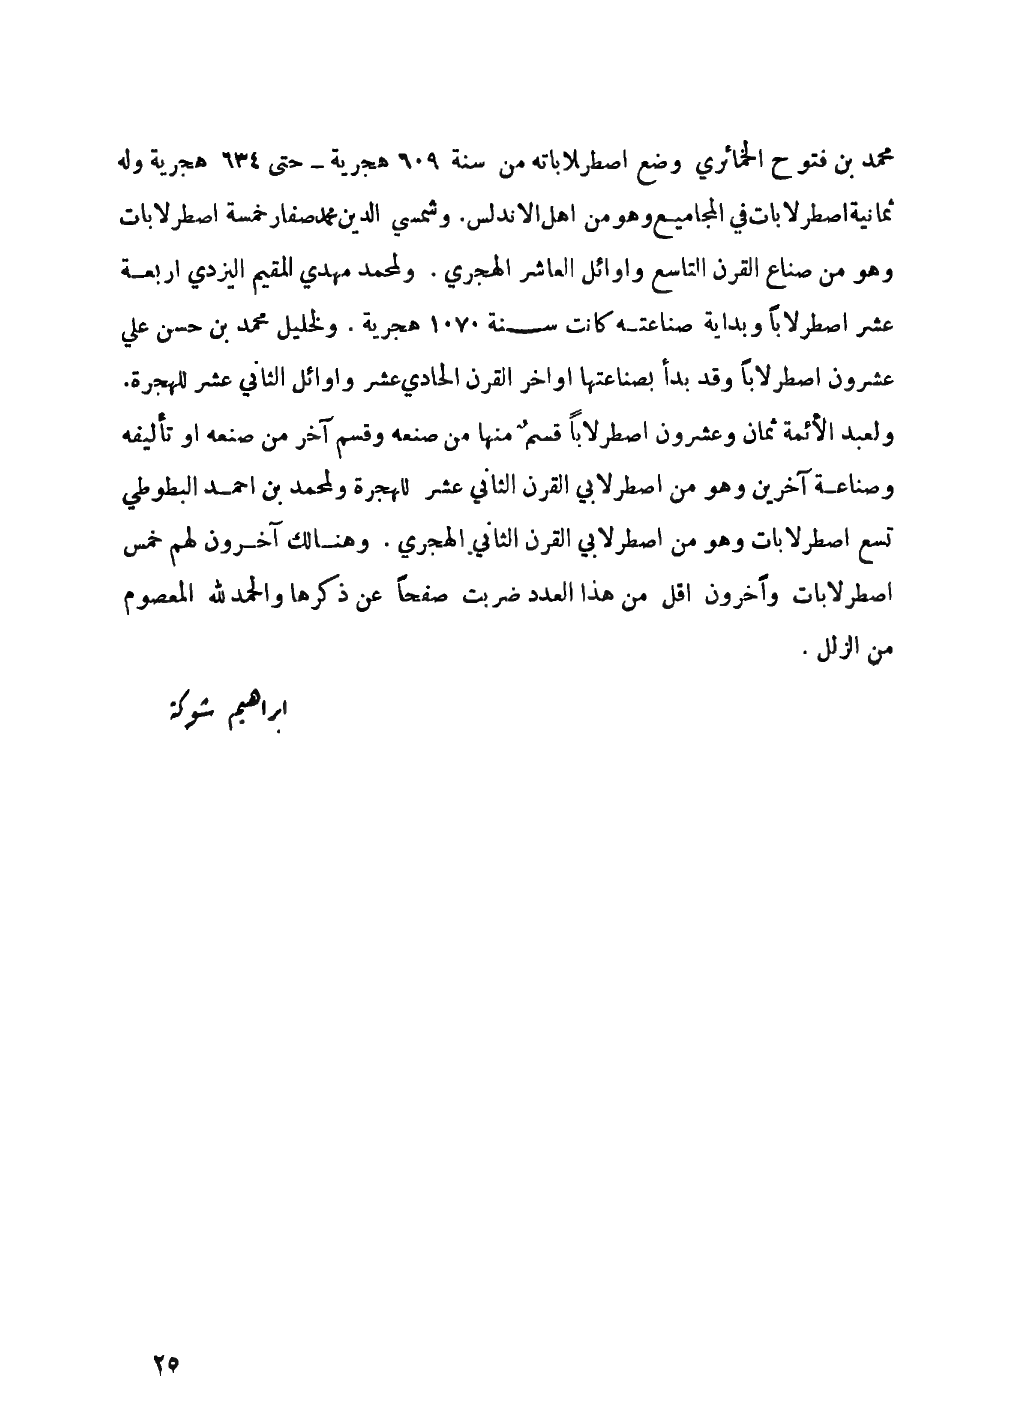 محمد بن فتوح الخمائري وضع اصطرلاباته من سنة ٦٠٩ هجرية ــ حتى ٦٣٤ هجرية وله
ثمانية اصطرلابات في المجاميع وهو من اهل الاندلس. وشمسي الدين محمد صفار خمسة اصطرلابات
وهو من صناع القرن التاسع واوائل العاشر الهجري . ولمحمد مهدي المقيم اليزدي اربعة
عشر اصطرلاباً وبداية صناعته كانت سنة ١٠٧٠ هجرية . ولخليل محمد بن حسن علي
عشرون اصطرلاباً وقد بدأ بصناعتها اواخر القرن الحادي عشر واوائل الثاني عشر للهجرة.
ولعبد الأئمة ثمان وعشرون اصطرلاباً قسمٌ منها من صنعه وقسم آخر من صنعه او تأليفه
وصناعة آخرين وهو من اصطرلابي القرن الثاني عشر للهجرة ولمحمد بن احمد البطوطي
تسع اصطرلابات وهو من اصطرلابي القرن الثاني الهجري . وهنالك آخرون لهم خمس
اصطرلابات وآخرون اقل من هذا العدد ضربت صفحاً عن ذكرها والحمد لله المعصوم
من الزلل .
ابراهيم شوكة
٢٥